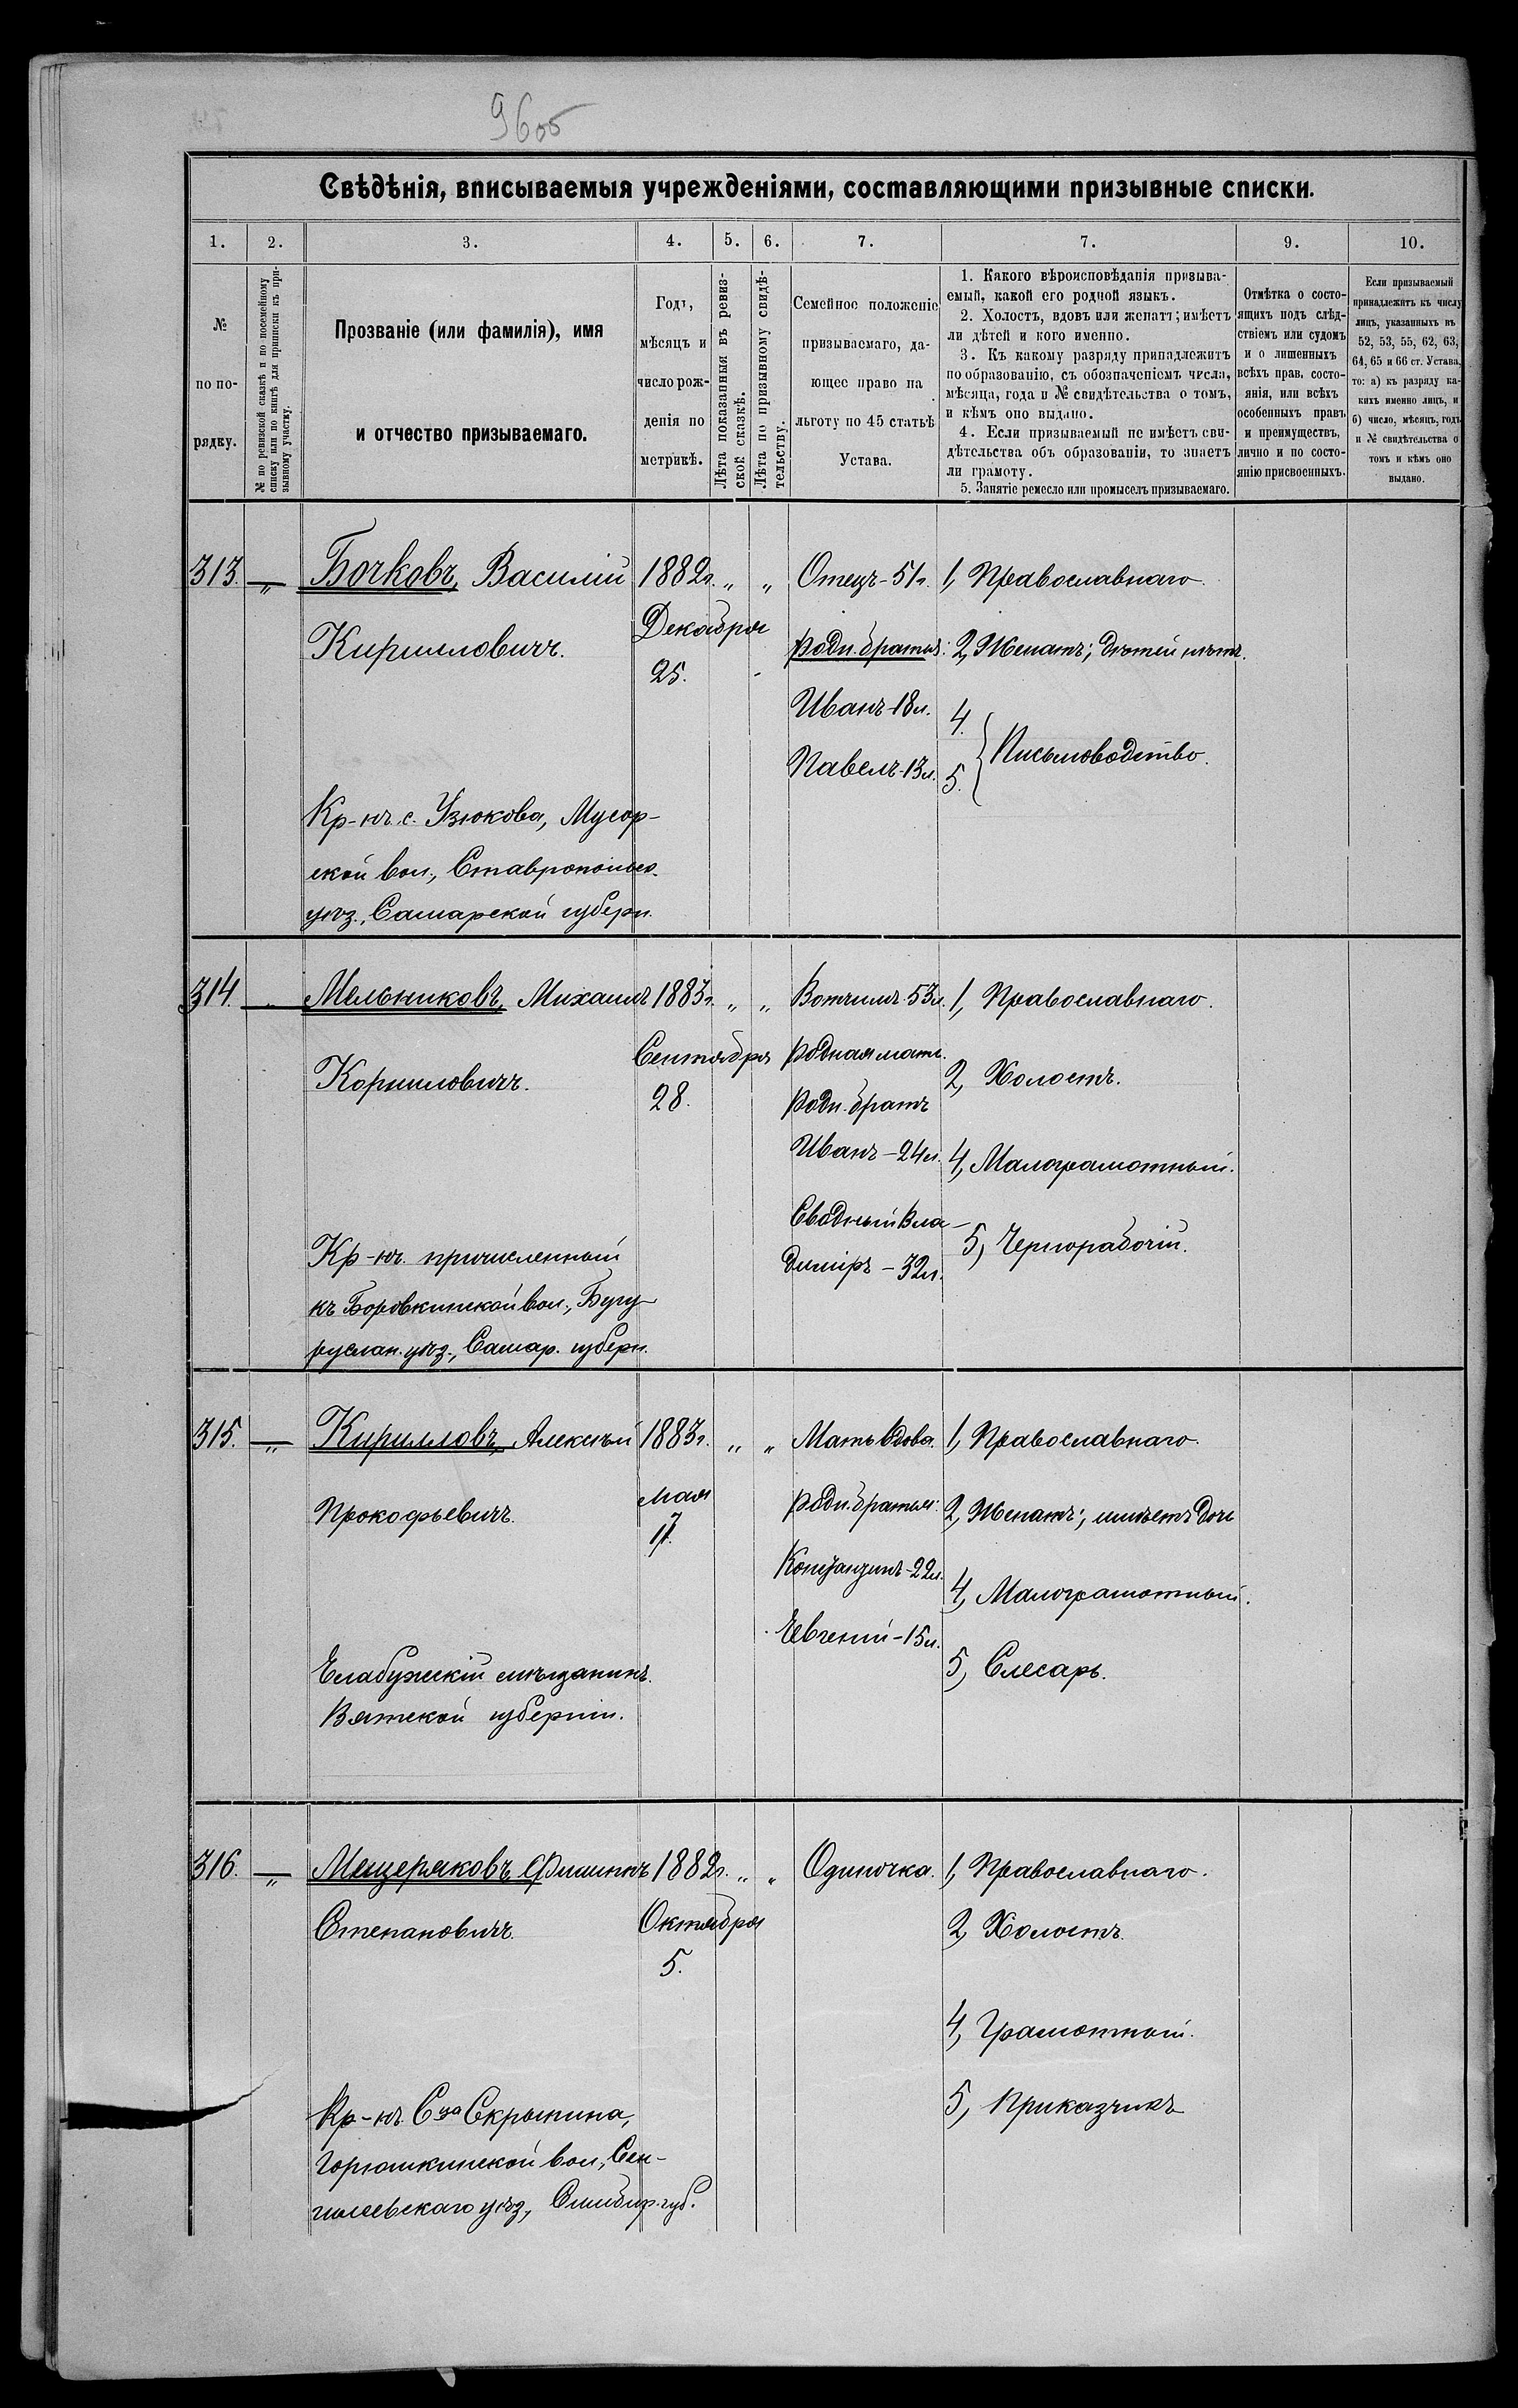 96об
Свѣдѣнія, вписываемыя учрежденіями, составляющими призывные списки.
1. 2. 3. 4. 5. 6. 7. 7. 9. 10.
№
по по-
рядку.
№ по ревизской сказкѣ и по посемейному
списку или по книгѣ для приписки къ при-
зывному участку.
Прозваніе (или фамилія), имя
и отчество призываемаго.
Годъ,
мѣсяцъ и
число рож-
денія по
метрикѣ.
Лѣта показанныя въ ревиз-
ской сказкѣ.
Лѣта по призывному свидѣ-
тельству.
Семейное положеніе
призываемаго, да-
ющее право на
льготу по 45 статьѣ
Устава.
1. Какого вѣроисповѣданія призыва-
емый, какой его родной языкъ.
2. Холостъ, вдовъ или женатъ; имѣетъ
ли дѣтей и кого именно.
3. Къ какому разряду принадлежитъ
по образованію, съ обозначеніемъ числа,
мѣсяца, года и № свидѣтельства о томъ,
и кѣмъ оно выдано.
4. Если призываемый не имѣетъ сви-
дѣтельства объ образованіи, то знаетъ
ли грамоту.
5. Занятіе ремесло или промыселъ призываемаго.
Отмѣтка о состо-
ящихъ подъ слѣд-
ствіемъ или судомъ
и о лишенныхъ
всѣхъ правъ состо-
янія, или всѣхъ
особенныхъ правъ
и преимуществъ,
лично и по состо-
янію присвоенныхъ.
Если призываемый
принадлежитъ къ числу
лицъ, указанныхъ въ
52, 53, 55, 62, 63,
64, 65 и 66 ст. Устава,
то: а) къ разряду ка-
кихъ именно лицъ, и
б) число, мѣсяцъ, годъ
и № свидѣтельства о
томъ и кѣмъ оно
выдано.
313. — „ Бочковъ, Василій 1882г. „ „ Отецъ-51г. 1, Православнаго.
Кирилловичъ. Декабря
25.
родн. братья: 2, Женатъ; дѣтей нѣтъ.
Иванъ-18л. 4.
Павелъ-13л. 5. Письмоводство.
Кр-нъ с. Узюкова, Мусор-
ской вол., Ставропольск.
уѣз., Самарской губерн.
314. — Мельниковъ, Михаилъ 1883г. „ „ Вотчимъ-53л. 1, Православнаго.
Корниловичъ. Сентября
28.
родная мать. 2, Холостъ.
родн. братъ
Иванъ-24л. 4, Малограмотный.
Сводный Вла-
димiръ-32л. 5, Чернорабочій.
Кр-нъ причисленный
къ Боровкинской вол., Бугу-
руслан. уѣз., Самар. губерн.
315. — „ Кирилловъ, Алексѣй 1883г. „ „ Мать вдова. 1, Православнаго.
Прокофьевичъ. мая
17.
родн. братья: 2, Женатъ; имѣетъ дочь
Константинъ-22л. 4, Малограмотный.
Евгеній-15л. 5, Слесарь.
Елабужскій мѣщанинъ.
Вятской губерніи.
316. — „ Мещеряковъ, Филиппъ 1882г. „ „ Одиночка. 1, Православнаго.
Степановичъ. Октября 2, Холостъ.
5.
4, Грамотный.
5, Приказчикъ
Кр-нъ С-ца Скрыпина,
Горюшкинской вол., Сен-
гилеевскаго уѣз., Симбир. губ.